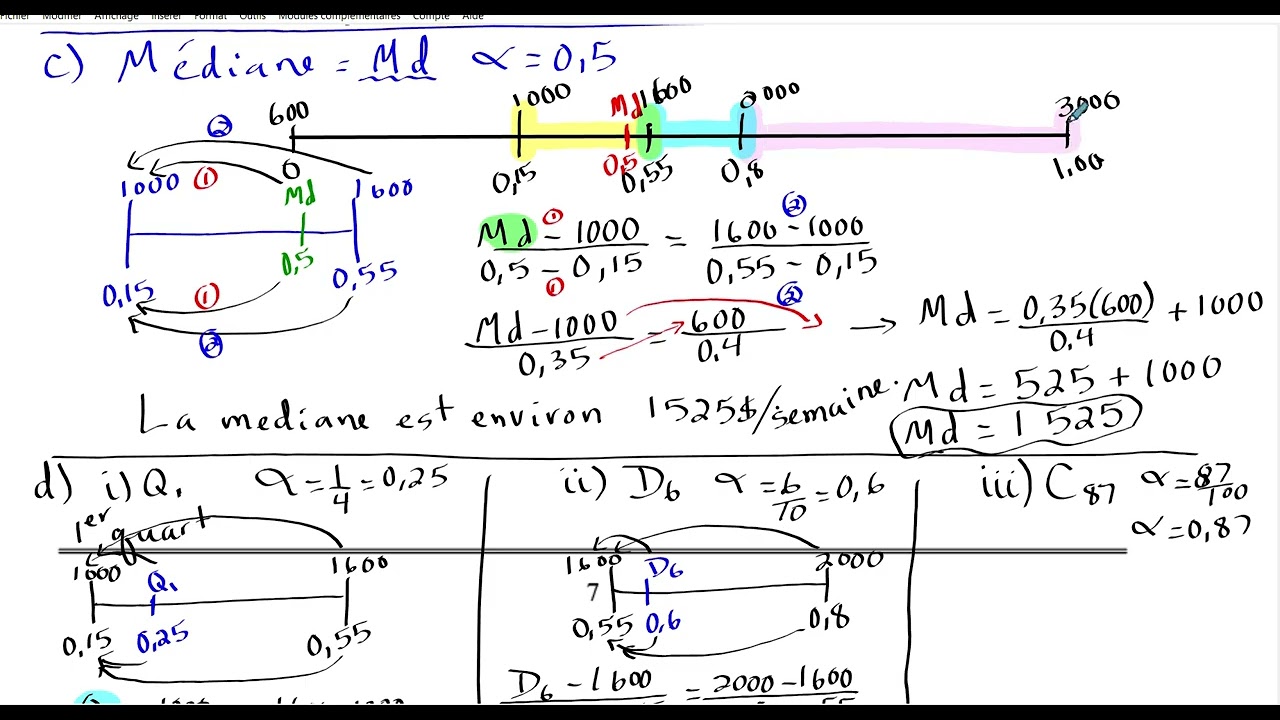 Fichier Modifier Affichage Insérer Format Outils Modules complémentaires Compte Aide
c) Médiane = Md α = 0,5
600 1000 Md 1600 2000 3000
0 0,15 0,5 0,55 0,8 1,00
② ①
1000 Md 1600
0,15 0,5 0,55
① ②
Md - 1000 = 1600 - 1000
0,5 - 0,15 0,55 - 0,15
① ① ②
Md - 1000 = 600 → Md = 0,35(600) + 1000
0,35 0.4 0.4
②
Md = 525 + 1000
La mediane est environ 1525$/semaine.
Md = 1 525
d) i) Q1 α = 1/4 = 0,25
1er quart
1000 Q1 1600
0,15 0,25 0,55
ii) D6 α = 6/10 = 0,6
1600 D6 2000
7
0,55 0,6 0,8
D6 - 1600 = 2000 - 1600
iii) C87 α = 87/100
α = 0,87